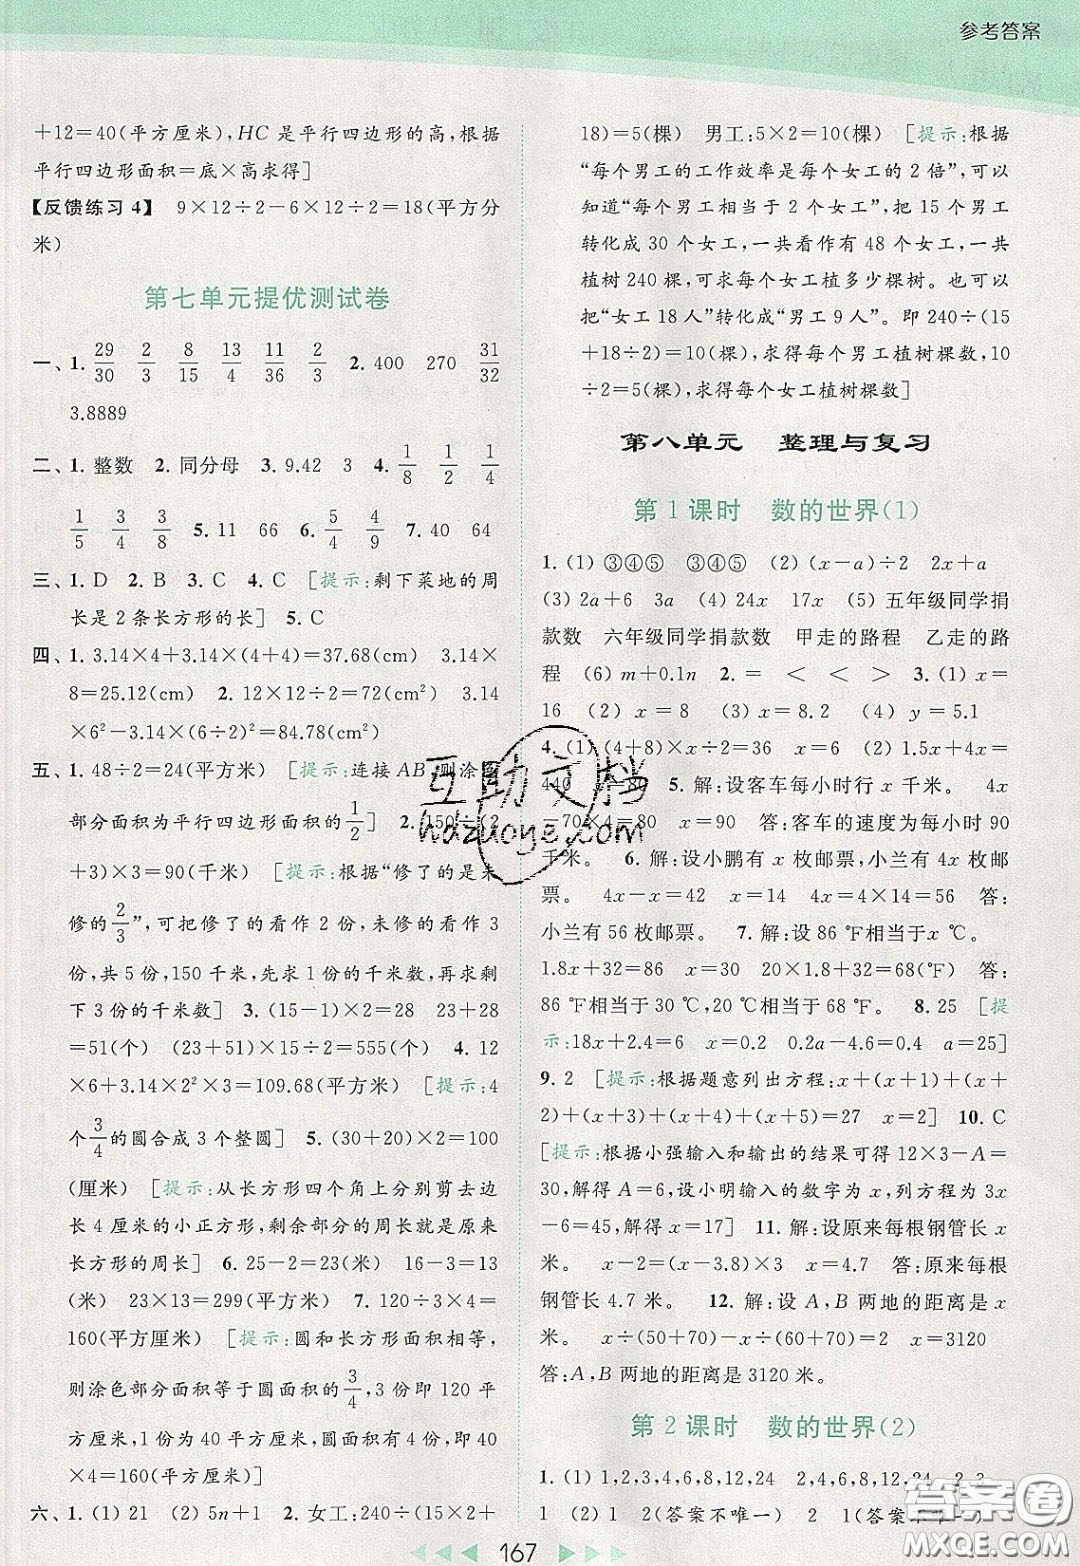 参考答案
+12=40(平方厘米),HC 是平行四边形的高,根据
平行四边形面积=底×高求得]
【反馈练习 4】 9×12÷2-6×12÷2=18(平方分
米)
第七单元提优测试卷
一、1. 29/30 2/3 8/15 13/4 11/36 2/3 2. 400 270 31/32
3.8889
二、1. 整数 2. 同分母 3. 9.42 3 4. 1/8 1/2 1/4
1/5 3/4 3/8 5. 11 66 6. 5/4 4/9 7. 40 64
三、1. D 2. B 3. C 4. C [提示:剩下菜地的周
长是 2 条长方形的长] 5. C
四、1. 3.14×4+3.14×(4+4)=37.68(cm) 3.14×
8=25.12(cm) 2. 12×12÷2=72(cm²) 3.14
×6²-3.14×(6÷2)²=84.78(cm²)
五、1. 48÷2=24(平方米) [提示:连接 AB,则涂色
部分面积为平行四边形面积的1/2] 2. 150÷(2
+3)×3=90(千米) [提示:根据“修了的是未
修的2/3”,可把修了的看作 2 份,未修的看作 3
份,共 5 份,150 千米,先求 1 份的千米数,再求剩
下 3 份的千米数] 3. (15-1)×2=28 23+28
=51(个) (23+51)×15÷2=555(个) 4. 12
×6+3.14×2²×3=109.68(平方米) [提示:4
个3/4的圆合成 3 个整圆] 5. (30+20)×2=100
(厘米) [提示:从长方形四个角上分别剪去边
长 4 厘米的小正方形,剩余部分的周长就是原来
长方形的周长] 6. 25-2=23(米) 16-3=13
(米) 23×13=299(平方米) 7. 120÷3×4=
160(平方厘米) [提示:圆和长方形面积相等,
则涂色部分面积等于圆面积的3/4,3 份即 120 平
方厘米,1 份为 40 平方厘米,圆面积 4 份,即 40
×4=160(平方厘米)]
六、1. (1) 21 (2) 5n+1 2. 女工:240÷(15×2+
18)=5(棵) 男工:5×2=10(棵) [提示:根据
“每个男工的工作效率是每个女工的 2 倍”,可以
知道“每个男工相当于 2 个女工”,把 15 个男工
转化成 30 个女工,一共看作有 48 个女工,一共
植树 240 棵,可求每个女工植多少棵树。也可以
把“女工 18 人”转化成“男工 9 人”。即 240÷(15
+18÷2)=10(棵),求得每个男工植树棵数,10
÷2=5(棵),求得每个女工植树棵数]
第八单元 整理与复习
第 1 课时 数的世界(1)
1. (1) ③④⑤ ③④⑤ (2) (x-a)÷2 2x+a
(3) 2a+6 3a (4) 24x 17x (5) 五年级同学捐
款数 六年级同学捐款数 甲走的路程 乙走的路
程 (6) m+0.1n 2. = < < > 3. (1) x=
16 (2) x=8 (3) x=8.2 (4) y=5.1
4. (1) (4+8)×x÷2=360 x=60 (2) 1.5x+4x=
440 x=80 5. 解:设客车每小时行 x 千米。 4x
-70×4=80 x=90 答:客车的速度为每小时 90
千米。 6. 解:设小鹏有 x 枚邮票,小兰有 4x 枚邮
票。 4x-x=42 x=14 4x=4×14=56 答:
小兰有 56 枚邮票。 7. 解:设 86 ℉相当于 x ℃。
1.8x+32=86 x=30 20×1.8+32=68(℉) 答:
86 ℉相当于 30 ℃,20 ℃相当于 68 ℉。 8. 25 [提
示:18x+2.4=6 x=0.2 0.2a-4.6=0.4 a=25]
9. 2 [提示:根据题意列出方程:x+(x+1)+(x+
2)+(x+3)+(x+4)+(x+5)=27 x=2] 10. C
[提示:根据小强输入和输出的结果可得 12×3-A=
30,解得 A=6,设小明输入的数字为 x,列方程为 3x
-6=45,解得 x=17] 11. 解:设原来每根钢管长 x
米。 x-2=(x-3.8)×3 x=4.7 答:原来每根
钢管长 4.7 米。 12. 解:设 A,B 两地的距离是 x
米。 x÷(50+70)-x÷(60+70)=2 x=3120
答:A,B 两地的距离是 3120 米。
第 2 课时 数的世界(2)
1. (1) 1,2,3,4,6,8,12,24 2,4,6,8,12,24 2,3
1 (2) 2(答案不唯一) 2 1(答案不唯一)
167
互助文档
hdzuoye.com
答案圈
MXQE.COM